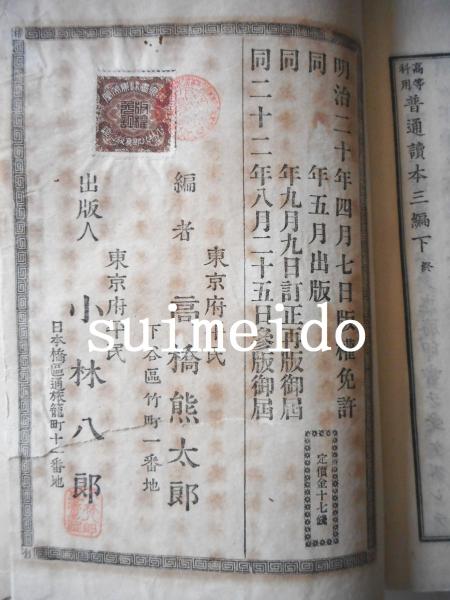 高等科用 普通讀本三編下 終
明治二十年四月七日版權免許
同 年五月出版
同 年九月九日訂正再版御屆
同二十二年八月二十五日參版御屆
定價金十七錢
東京府 民
編者 高橋熊太郎
下谷區竹町一番地
東京府平民
出版人 小林八郎
日本橋區通旅籠町十一番地
suimeido